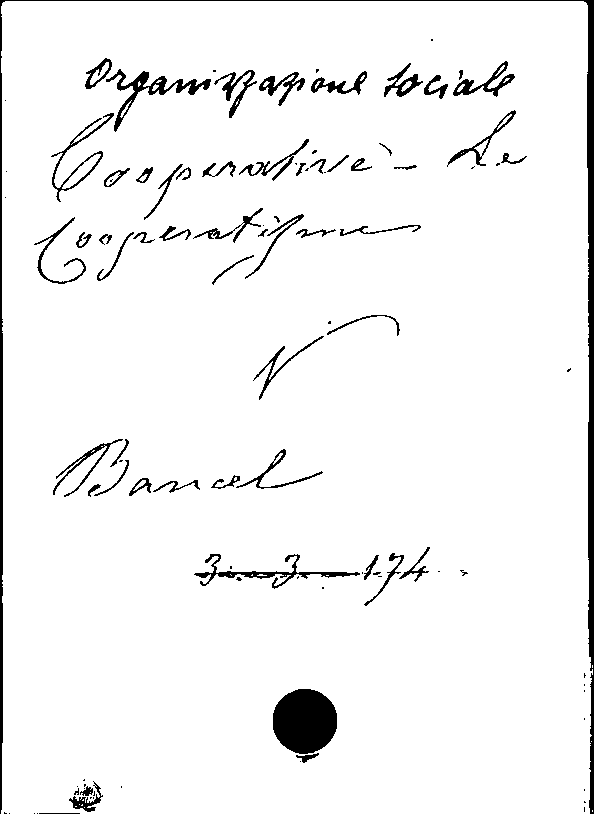 Organizzazione sociale
Cooperative - Le
Cooperatisme
V
Bancel
3. 3. 174